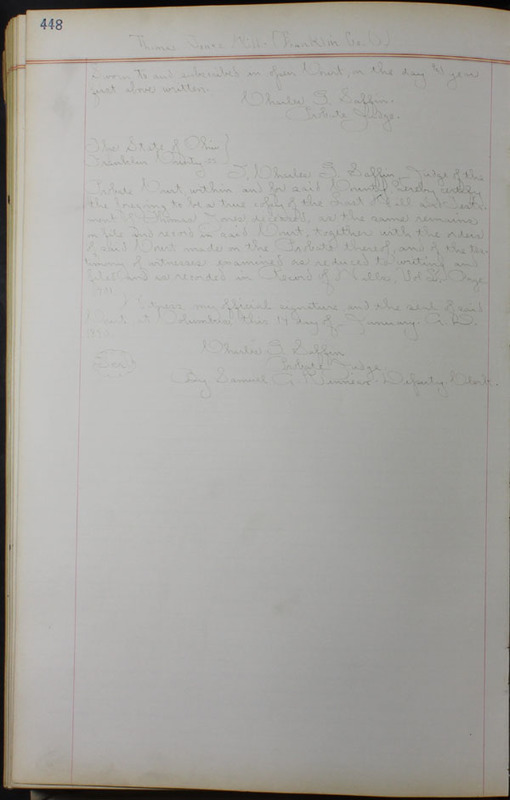 448
Thomas Jones Will (Franklin Co. O.)
sworn to and subscribed in open Court, on the day & year
just above written.
Charles G. Saffin.
Probate Judge.
The State of Ohio }
Franklin County ss }
I, Charles G. Saffin, Judge of the
Probate Court, within and for said County, hereby certify
the foregoing to be a true copy of the Last Will and Testa-
ment of Thomas Jones deceased, as the same remains
on file and record in said Court, together with the orders
of said Court made on the Probate thereof, and of the tes-
timony of witnesses examined as reduced to writing and
filed and as recorded in Record of Wills, Vol Page
Witness my official signature and the seal of said
Court, at Columbus this 17 day of January A. D.
Charles G. Saffin
(Seal) Probate Judge.
By Samuel Kinnear. Deputy Clerk.